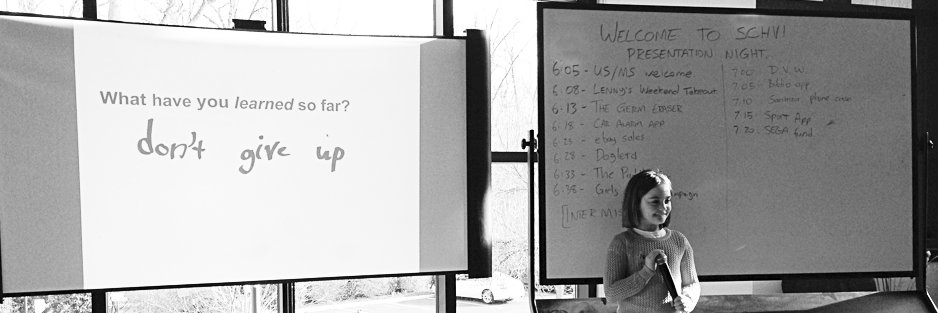 What have you learned so far?
don't give up
WELCOME TO SCHVI
PRESENTATION NIGHT.
6:05 - US/MS welcome
6:08 - LENNY'S Weekend Takeout
6:13 - THE GERM ERASER
6:18 - CAR ALARM APP
6:23 - ebay sales
6:28 - Doglerd
6:33 - The
6:38 - Girls
[INTERMIS
7:00 D.V.W.
7:05 Biblio app
7:10 phone case
7:15 Sport App
7:20 SEGA